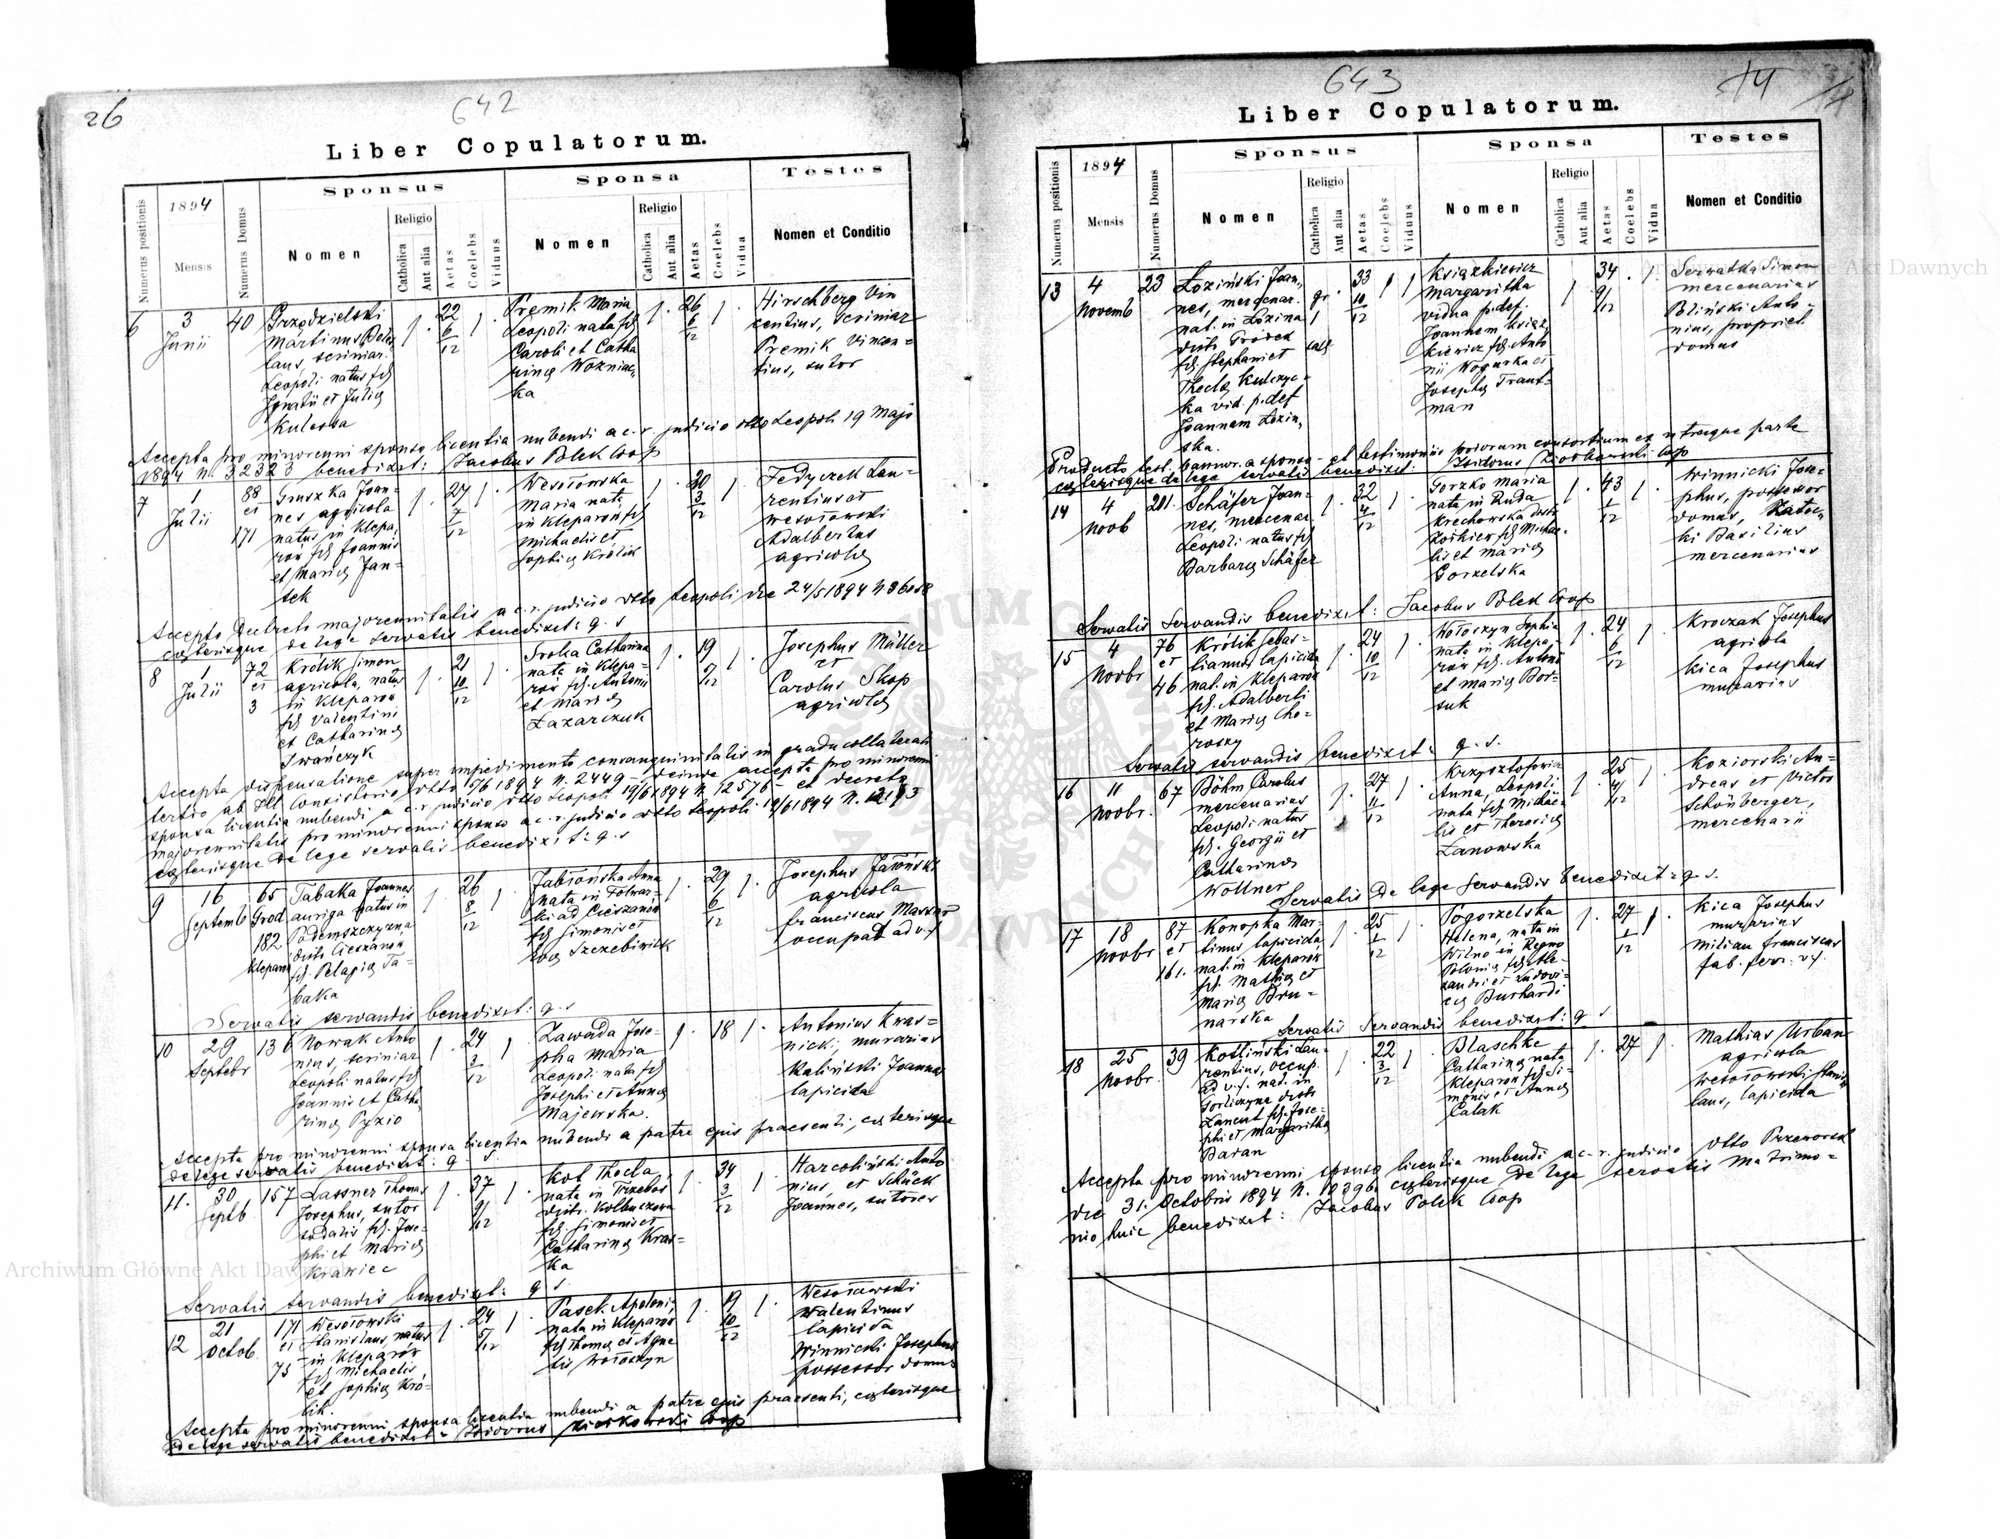 26
642
Liber Copulatorum.
Numerus positionis
1894
Mensis
Numerus Domus
Sponsus
Nomen
Religio
Catholica
Aut alia
Aetas
Coelebs
Viduus
Sponsa
Nomen
Religio
Catholica
Aut alia
Aetas
Coelebs
Vidua
Testes
Nomen et Conditio
6
3
Junii
40
Grzędzielski
Martinus
laus, scriniar.
Leopoli natus fil
Ignatii et Julia
Kulessa
22
6
12
Premik Maria
Leopoli nata fil
Caroli et Catha
rina Wozniac
ka
26
6
12
Hirschberg Vin
centius, scriniar
Premik Vincen=
tius, sutor
Accepta pro minorenni sponso licentia nubendi a c. r. judicio dtto Leopoli 19 Maji
1894 N. 32323 benedixit: Jacobus Polek Coop
7
1
Julii
88
et
171
Gruszka Joan-
nes agricola
natus in Klepa
rów fil Joannis
et Maria Jan-
sek
27
7
12
Wesołowska
Maria nata
in Kleparów fil
Michaelis et
Sophia Królik
20
3
12
Fedyczek Lau-
rentius et
Wesołowski
Adalbertus
agricola
Accepto Decreto majorennitatis a c. r. judicio dtto Leopoli die 24/5 1894 N. 36058
caeterisque de lege servatis benedixit: q. s
8
1
Julii
72
et
3
Królik Simon
agricola, natus
in Kleparów
fil Valentini
et Catharina
Iwańczyk
21
10
12
Sroka Catharina
nata in Klepa-
rów fil. Antonii
et Maria
Łazarczuk
19
12
Josephus Müller
et
Carolus Skop
agricola
Accepta dispensatione super impedimento consanguinitatis in gradu collaterali
tertio ab Ill. Consistorio dtto 9/6 1894 N. 2449 - deinde accepta pro minorenni
sponsa licentia nubendi a c. r. judicio dtto Leopoli 19/6 1894 N. 12576 - et decreto
majorennitatis pro minorenni sponso a c. r. judicio dtto Leopoli 19/6 1894 N.
caeterisque de lege servatis benedixit: q. s
9
16
Septemb
65
Grod
182
Klepard
Tabaka Joannes
auriga natus in
Podemszczyzna
distr Cieszanow
fil. Pelagia Ta-
baka
26
8
12
Jabłońska Anna
nata in Folwar-
ki ad Cieszanów
fil Simonis et
29
6
12
Josephus
agricola
Franciscus
occupat ad v.f
Servatis servandis benedixit: q. s
10
29
Septebr
136
Nowak Anto
nius, scriniar
Leopoli natus fil
Joannis et Catha
rina Pyzio
24
3
12
Zawada Jose-
pha Maria
Leopoli nata fil
Josephi et Anna
Majewska.
18
Antonius Kras=
nicki, murarius
Kaliński Joannes
lapicida
Accepta pro minorenni sponsa licentia nubendi a patre ejus praesenti, caeterisque
de lege servatis benedixit: q s.
11.
30
Septb
157
Lassner Thomas
Josephus, sutor
sodalis fil. Jose-
phi et Maria
Krawiec
37
9
12
Kot Thecla,
nata in Trzebos
distr. Kolbuszowa
fil Simonis et
Catharina Kras=
ka
34
3
12
Harcoliński Anto
nius, et Schück
Joannes, sutores
Servatis servandis benedixit: q s.
12
21
Octob.
171
et
75
Wesołowski
Stanislaus, natus
in Kleparów
fil Michaelis
et Sophia Kró-
lik.
24
5
12
Pasek Apolonia,
nata in Kleparów
fil Thoma et Agne
tis Wołoszyn
19
10
12
Wesołowski
Valentinus
lapicida
Winnicki Josephus
possessor domus
Accepta pro minorenni sponsa licentia nubendi a patre ejus praesenti, caeterisque
de lege servatis benedixit: Isidorus Coop
643
14
14
Liber Copulatorum.
Numerus positionis
1894
Mensis
Numerus Domus
Sponsus
Nomen
Religio
Catholica
Aut alia
Aetas
Coelebs
Viduus
Sponsa
Nomen
Religio
Catholica
Aut alia
Aetas
Coelebs
Vidua
Testes
Nomen et Conditio
13
4
Novemb
23
Łoziński Joan,
nes, mercenar.
nat. in Łozina
distr Gródek
fil. Stephani et
Thecla Kulczyc-
ka vid. p. def
Joannam Łozin,
ska.
gr.
cath
33
10
12
Książkiewicz
Margaritha
vidua p. def.
Joannem Książ
kiewicz fil. Anto
nii Wogurka et
Josepha Traut-
man
34
9
12
Serwatka Simon
mercenarius
Bliński Anto-
nius, propriet
domus
Producto test. bannor. a sponso - et testimoniis priorum consortium ex utraque parte
caeterisque de lege servatis benedixit: Isidorus Coop
14
4
Noob
201.
Schäfer Joan-
nes, mercenar
Leopoli natus fil
Barbara Schäfer
32
4
12
Gorzko Maria
nata in Ruda
Krechowska distr
Żołkiew fil Michae-
lis et Maria
Gorzelska
43
1
12
Winnicki Jose-
phus, possessor
domus,
ki Basilius
mercenarius
Servatis servandis benedixit: Jacobus Polek Coop
15
4
Novbr
76
et
46
Królik Sebas-
tianus, lapicida
nat. in Kleparów
fil. Adalberti
et Maria Cho-
roszy
24
10
12
Wołoszyn Sophia
nata in Klepa-
rów fil. Antonii
et Maria Bor-
suk
24
6
12
Kroczak Josephus
agricola
Kica Josephus
murarius
Servatis servandis benedixit: q. s.
16
11
Noobr.
67
Böhm Carolus
mercenarius
Leopoli natus
fil. Georgii et
Catharina
Wollner
27
11
12
Krzysztofowicz
Anna, Leopoli
nata fil Michae-
lis et Theresia
Łanowska
25
4
12
Koziorski An-
dreas et Victor
Schönberger,
mercenarii
Servatis de lege servandis benedixit: q. s.
17
18
Noobr
87
et
161.
Konopka Mar-
tinus, lapicida,
nat. in Kleparów
fil. Mathia et
Maria Bru-
narska
25
1
12
Pogorzelska
Helena, nata in
Wilno in Regno
Polonia fil. Ale-
xandri et Ludovi-
ca Burhardi
27
1
12
Kica Josephus
murarius
Milian Franciscus
fab. ferr. v.f.
Servatis servandis benedixit: q s
18
25
Noobr.
39
Kosliński Lau-
rentius, occup.
ad v.f. nat. in
Gorliczyna distr
Łancut fil. Jose-
phi et Margaritha
Baran
22
3
12
Blaschke
Catharina nata
Kleparów fil Si-
monis et Anna
Calak
27
Mathias Urban
agricola
Wesołowski Stanis
laus, lapicida
Accepta pro minorenni sponso licentia nubendi a c. r. judicio dtto Przeworsk
die 31. Octobris 1894 N. 10396 caeterisque de lege servatis matrimo-
nio huic benedixit: Jacobus Polek Coop
Archiwum Główne Akt Dawnych